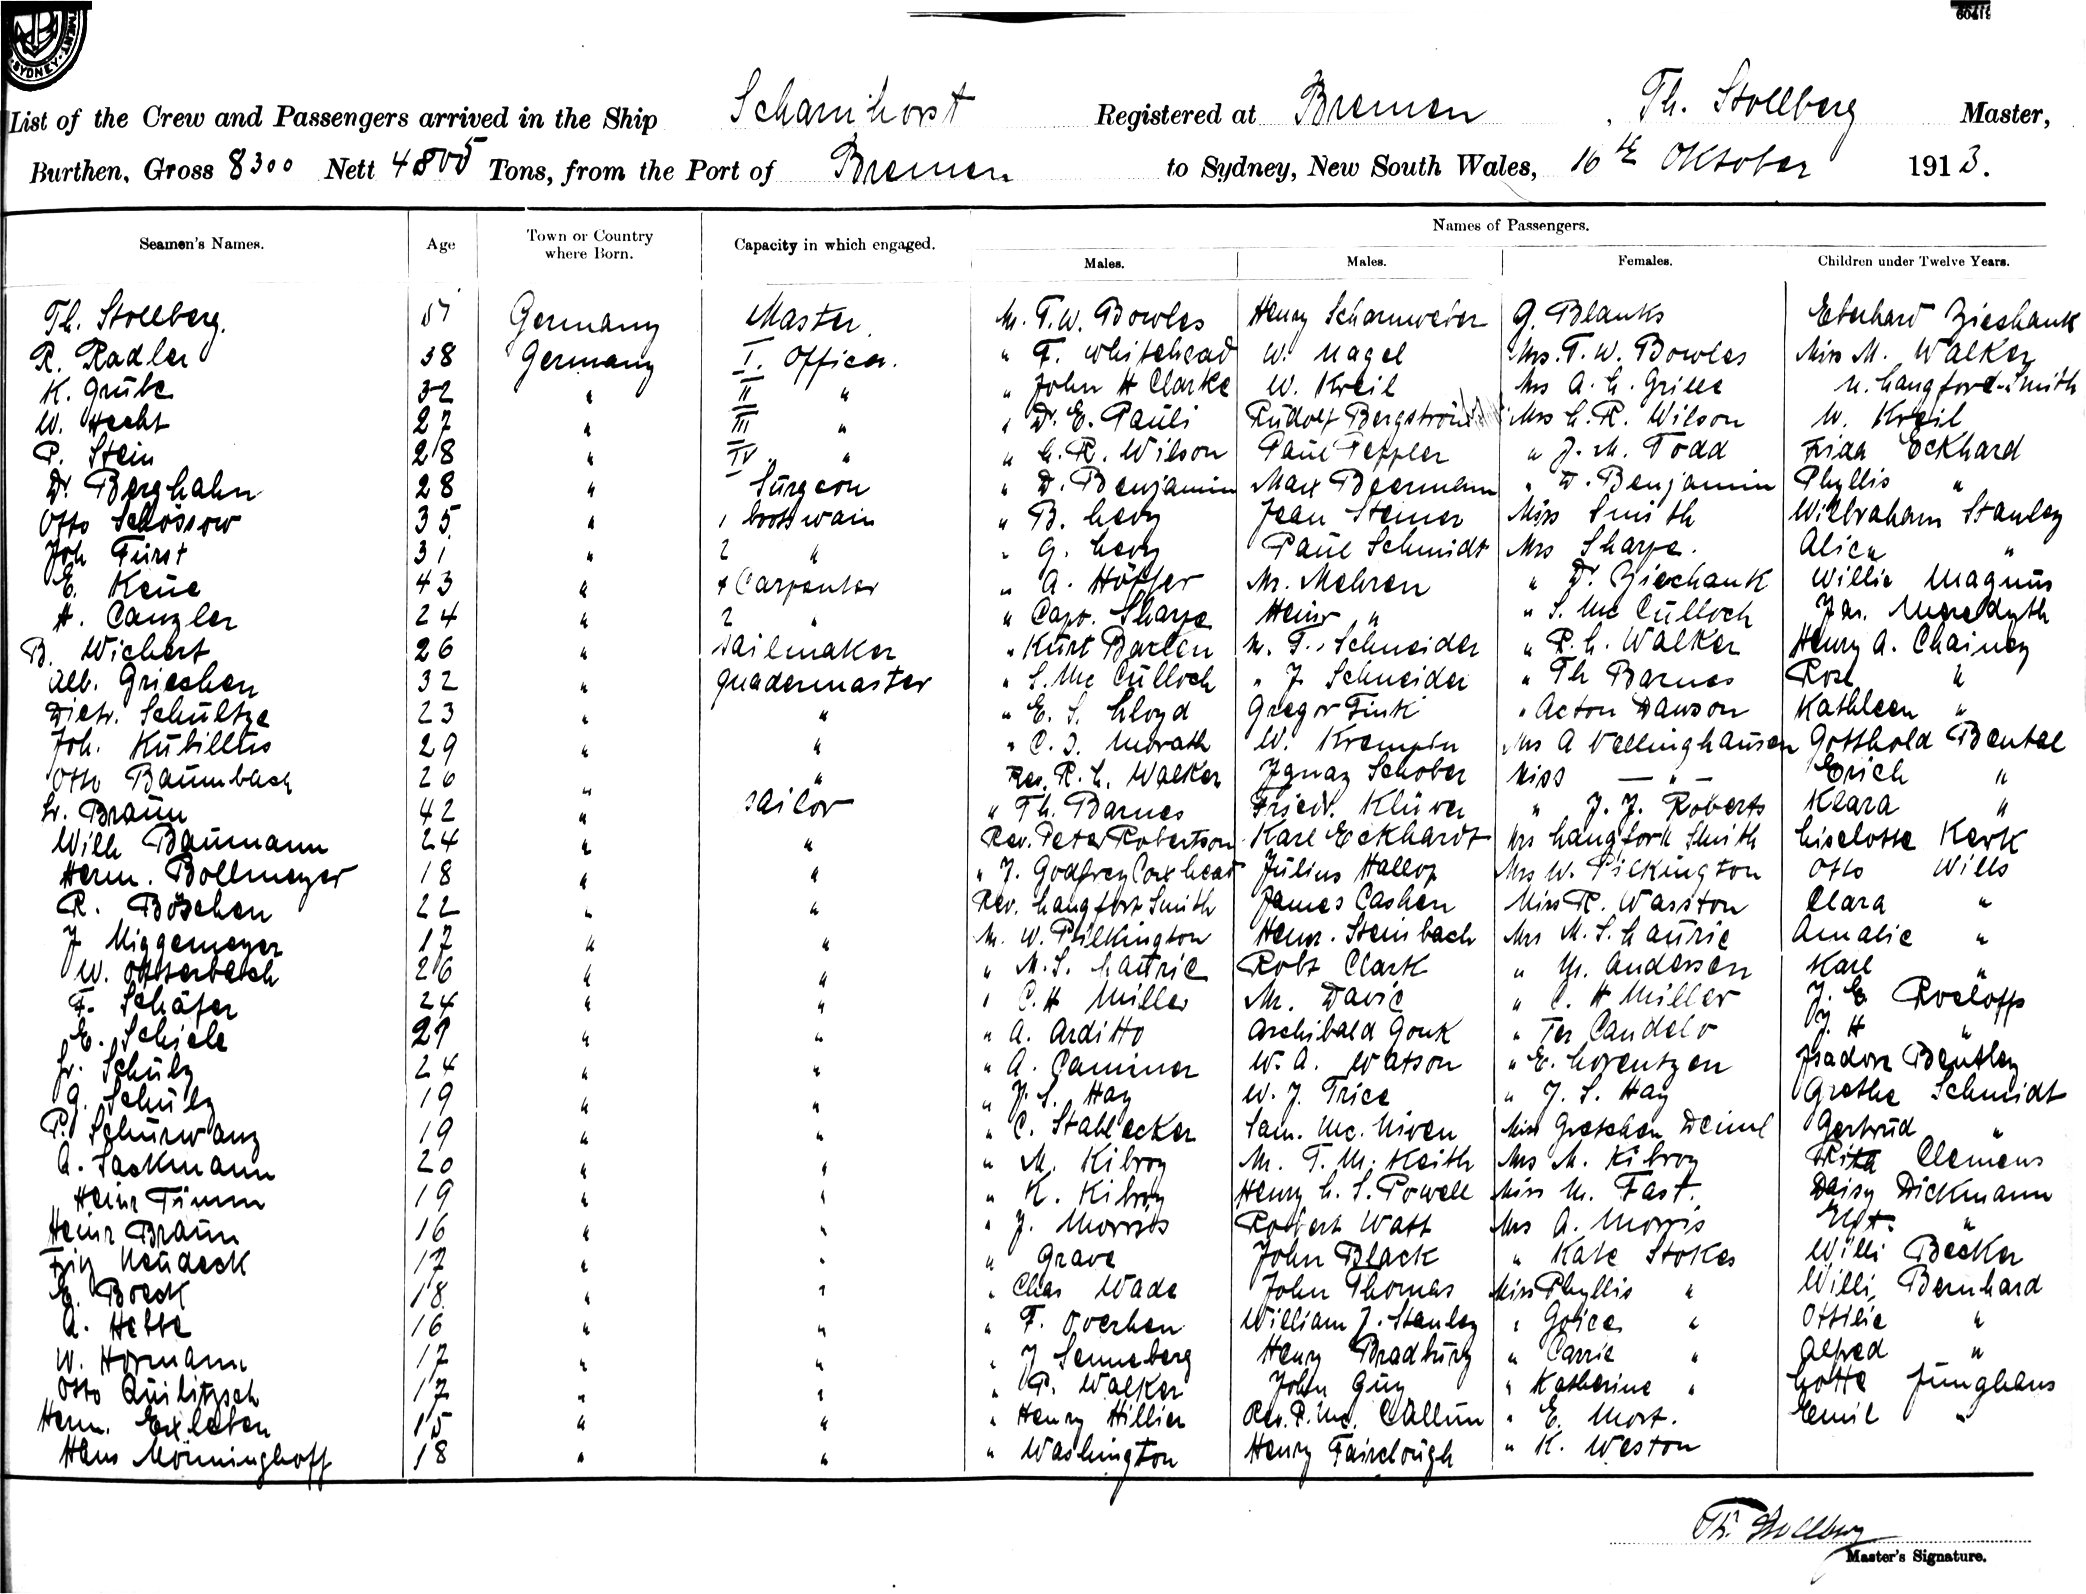 SYDNEY
List of the Crew and Passengers arrived in the Ship Scharnhorst Registered at Bremen, Th. Stollberg Master,
Burthen, Gross 8300 Nett 4805 Tons, from the Port of Bremen to Sydney, New South Wales, 16th Oktober 1913.
Names of Passengers.
Seamen's Names. Age Town or Country where Born. Capacity in which engaged. Males. Males. Females. Children under Twelve Years.
Th. Stollberg. 51 Germany Master. Mr. T. W. Bowles Henry Scharnweber G. Blanks Eberhard Zieshank
R. Radler 38 Germany I. Officer. " F. Whitehead W. Nagel Mrs. T. W. Bowles Miss M. Walker
K. Grube 32 " II " " John H Clarke W. Kreil Mrs A. H. Grille N. Langford-Smith
W. Hecht 27 " III " " Dr. E. Pauli Rudolf Bergström Mrs L. R. Wilson W. Kreil
P. Stein 28 " IV " " L. R. Wilson Paul Peppler " J. M. Todd Frida Eckhard
Dr. Berghahn 28 " Surgeon " D. Benjamin Max Beermann " D. Benjamin Phyllis "
Otto Schössow 35 " 1 bootswain " B. Levy Jean Stemer Miss Smith Wilbraham Stanley
Joh Fürst 31 " 2 " " G. Levy Paul Schmidt Mrs Sharpe. Alice "
E. Keue 43 " 1 Carpenter " A. Höffer Mr. Mehren " Dr. Zieshank Willie Magnus
H. Canzler 24 " 2 " " Capt. Sharpe Heinr " " S. Mc Culloch Jas. Meredyth
B. Wichert 26 " sailmaker " Kurt Barten M. F. Schneider " R. L. Walker Henry A. Chainey
Alb. Grieshen 32 " quadermaster " S. Mc Culloch " J Schneider " Th Barnes Rose "
Dietr. Schultze 23 " " " E. S. Lloyd Gregor Fink " Acton Dawson Kathleen "
Joh. Kubillus 29 " " " C. J. Morath W. Krempin Mrs A Vellinghausen Gotthold Beutel
Otto Baumbach 26 " " Rev. R. L. Walker Ignaz Schober Miss — " — Erich "
Fr. Braun 42 " sailor " Th. Barnes Friedr. Klüver " J. J. Roberts Klara "
Wilh Baumann 24 " " Rev. Peter Robertson Karl Eckhardt Mrs Langfort Smith Liselotte Kerk
Herm. Bollmeyer 18 " " " J. Godfrey Coxhead Julius Hallop Mrs W. Pilkington Otto Wills
R. Böschen 22 " " Rev. Langfort Smith James Cashen Miss R. Wasston Clara "
J Niggemeyer 17 " " Mr. W. Pilkington Heinr. Steinbach Mrs M. S. Laurie Amalie "
W. Otterbach 26 " " " M. S. Laurie Robt Clark " M. Andersen Karl "
F. Schäfer 24 " " " C. H Miller Mr. David " C. H Miller J. E Roeloffs
E. Schiele 29 " " " A. Arditto Archibald Gouk " Ter Candelo J. H "
Fr. Schulz 24 " " " A. Caminer W. A. Watson " E. Lorentzen Isadore Bentley
G. Schulz 19 " " " J. S. Hay W. J. Trice " J. S. Hay Grethe Schmidt
P. Schurwanz 19 " " " C. Stahlecker Sam. Mc. Niven Miss Gretchen Deinel Gertrud "
A. Sackmann 20 " " " M. Kibroy Mr. T. M. Keith Mrs M. Kibroy Rita Clemens
Heinr Timm 19 " " " K. Kibroy Henry L. S. Powell Miss M. Fast. Daisy Dickmann
Heinr Braun 16 " " " J. Morris Robert Watt Mrs A. Morris "
Fritz Neudeck 17 " " " Grave John Black " Kate Stokes Willi Becker
E. Bock 18 " " " Chas Wade John Thomas Miss Phyllis " Willi Bernhard
A. Hebbe 16 " " " F. Overhen William J. Stanley " " Ottilie "
W. Hormann 17 " " " J Senneberg Henry Bradbury " Carrie " Alfred "
Otto Quilitzsch 17 " " " P. Walker John Guy " Katherine " Lotte Junghans
Herm. Exleben 15 " " " Henry Hillier Rev. P. Mc. Callum " E. Mort. Emil "
Hans Mönninghoff 18 " " " Washington Henry Fairclough " K. Weston
Th. Stollberg
Master's Signature.